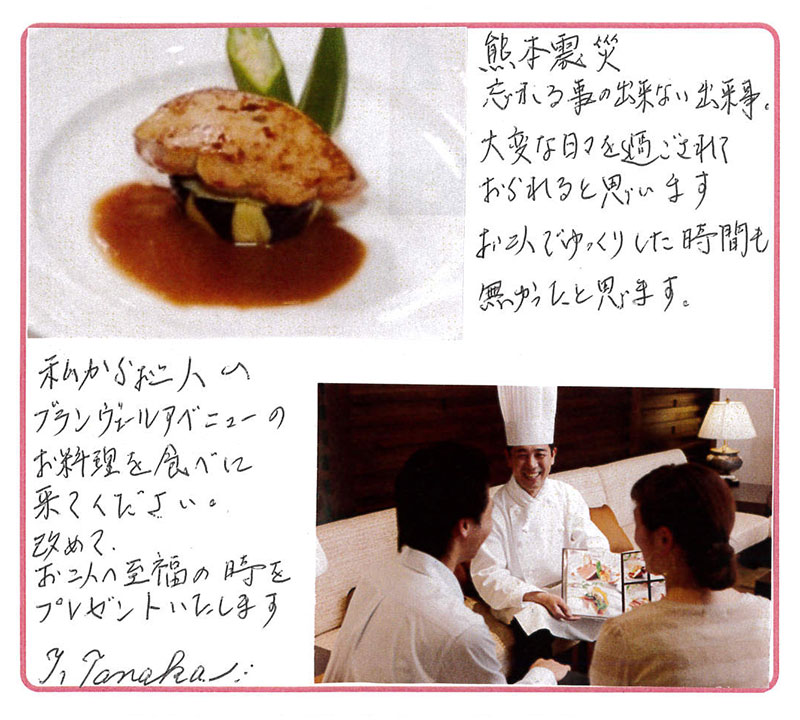 熊本震災
忘れる事の出来ない出来事。
大変な日々を過ごされて
おられると思います
お二人でゆっくりした時間も
無かったと思います。
私からお二人へ
ブランヴェールアベニューの
お料理を食べに
来てください。
改めて、
お二人へ至福の時を
プレゼントいたします
Y. Tanaka